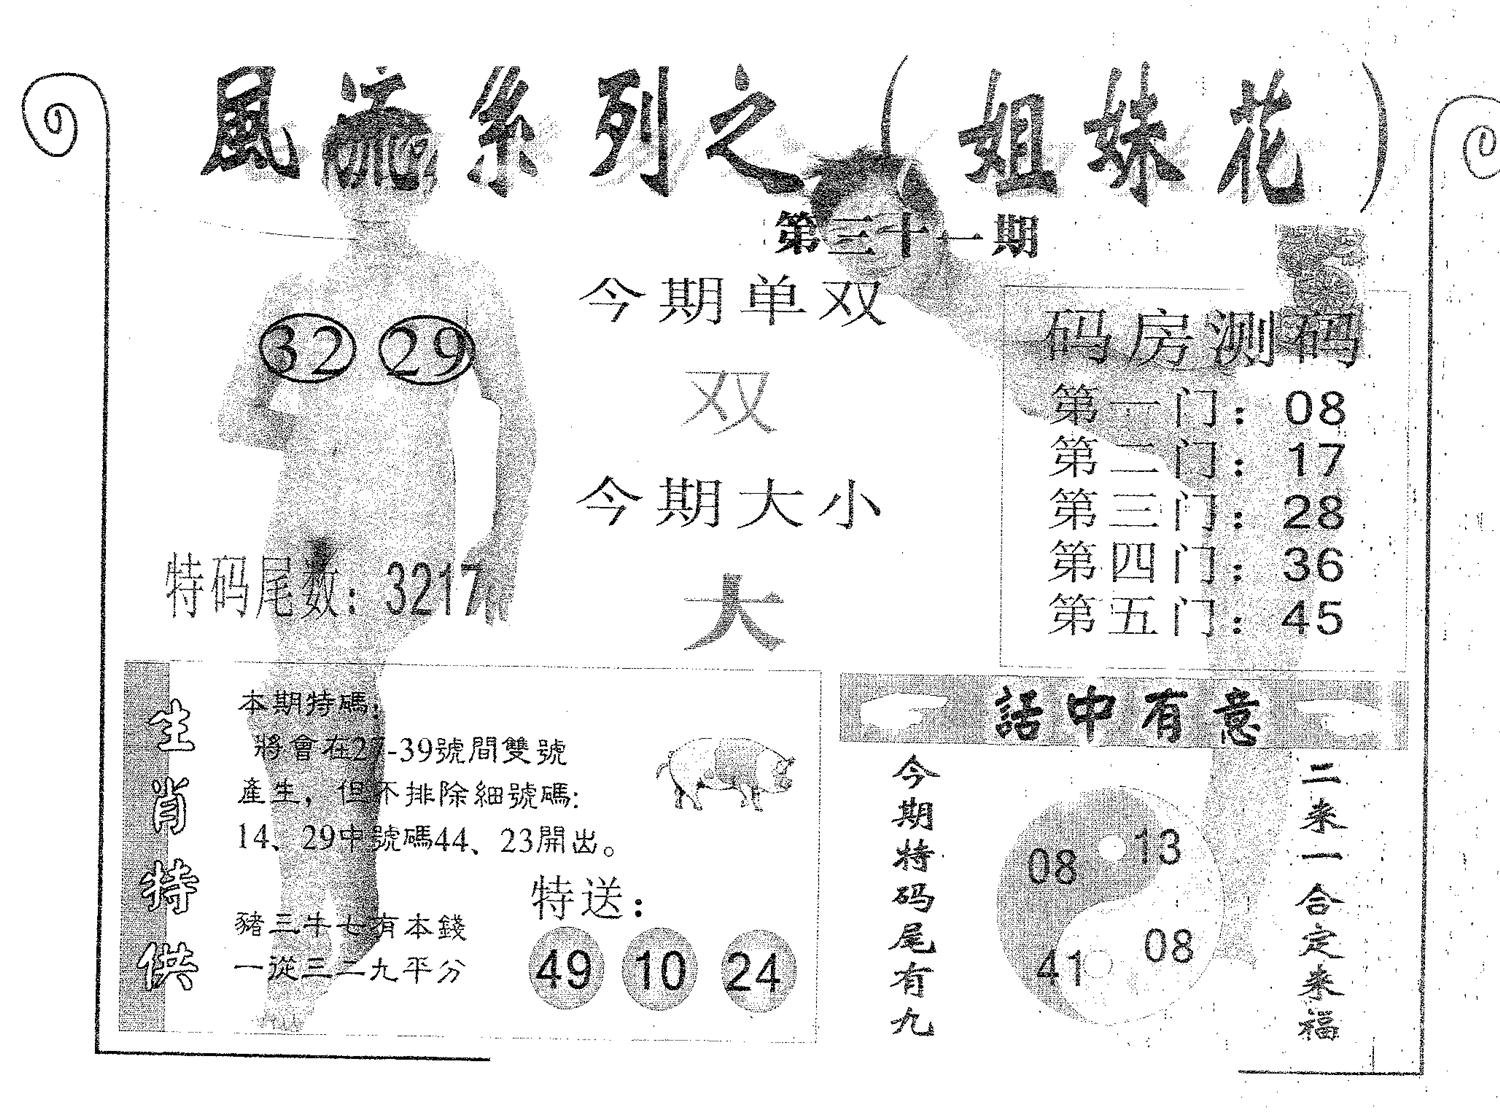 風流系列之（姐妹花）
第三十一期
32 29
今期单双
双
今期大小
大
特码尾数：3217
码房测码
第一门：08
第二门：17
第三门：28
第四门：36
第五门：45
生肖特供
本期特碼：
將會在27-39號間雙號
產生，但不排除細號碼：
14、29中號碼44、23開出。
豬三牛七有本錢
一從三二九平分
特送：
49 10 24
話中有意
今期特码尾有九
08 13
41 08
二来一合定来福